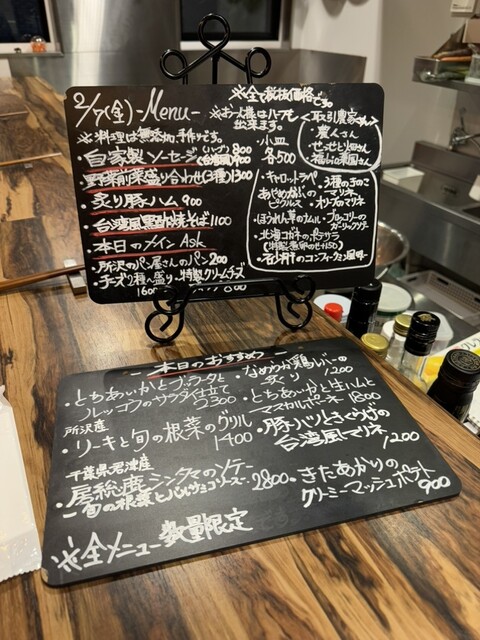 2/7(金) -Menu-
※全て税抜価格です。
※お一人様はハーフも出来ます。
※料理は無添加、手作りです。
・自家製ソーセージ(ハーブ)800
(台湾風)900
・野菜前菜盛り合わせ(3種)1300
・炙り豚ハム 900
・台湾風黒酢焼そば1100
・本日のメイン Ask
・所沢のパン屋さんのパン200
・チーズ2種盛り
1600
・特製クリームチーズ
800
・小皿
各500
<取引農家さん>
農くさん
せっせと畑さん
・キャロットラペ
・3種のきのこ
マリネ
・オリーブのマリネ
ピクルス
・ほうれん草のナムル
・ブロッコリーの
ガーリックソテー
・北海コガネのポテサラ
(特製煮卵のせ+150)
・砂肝のコンフィ〜クミン風味〜
- 本日のおすすめ -
・とちあいかとブラータと
ルッコラのサラダ仕立て
2300
所沢産
・リーキと旬の根菜のグリル
1400
千葉県君津産
・房総鹿シンタマのソテー
〜旬の根菜とバルサミコソース〜 2800
・なめらか鶏レバーの
炙り 1200
・とちあいかと生ハムと
マスカルポーネ 1800
・豚ハツときくらげの
台湾風マリネ
1200
・きたあかりの
クリーミーマッシュポテト
900
※全メニュー数量限定